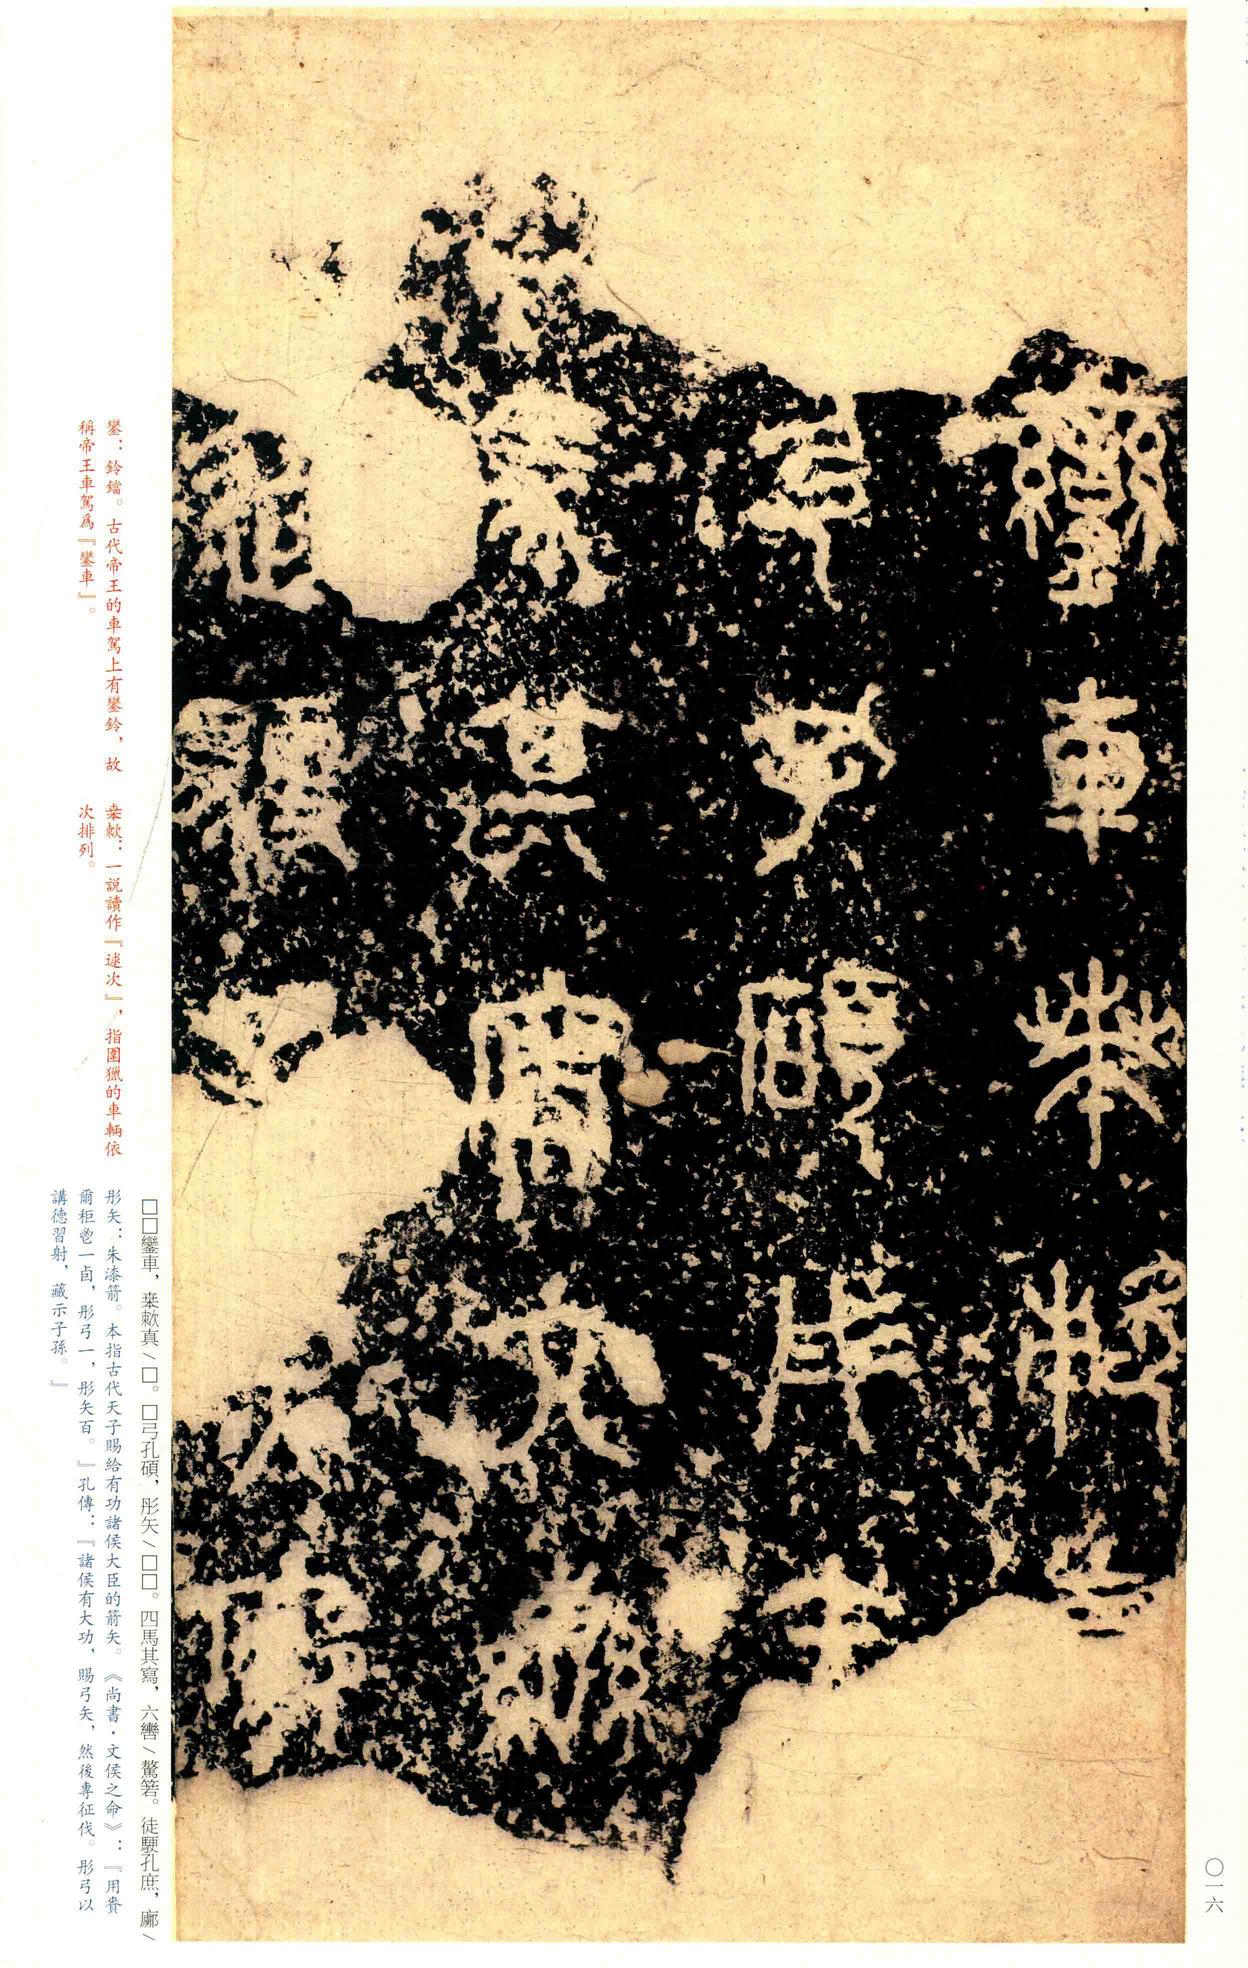 〇一六
鑾車桒欶真
弓孔碩彤矢
馬其寫六轡
□□鑾車，桒欶真／□。□弓孔碩，彤矢／□□。四馬其寫，六轡／驁箬。徒駛孔庶，廓／
鑾：鈴鐺。古代帝王的車駕上有鑾鈴，故
稱帝王車駕爲『鑾車』。
桒欶：一説讀作『逑次』，指圍獵的車輛依
次排列。
彤矢：朱漆箭。本指古代天子賜給有功諸侯大臣的箭矢。《尚書·文侯之命》：『用賚
爾秬鬯一卣，彤弓一，彤矢百。』孔傳：『諸侯有大功，賜弓矢，然後專征伐。彤弓以
講德習射，藏示子孫。』